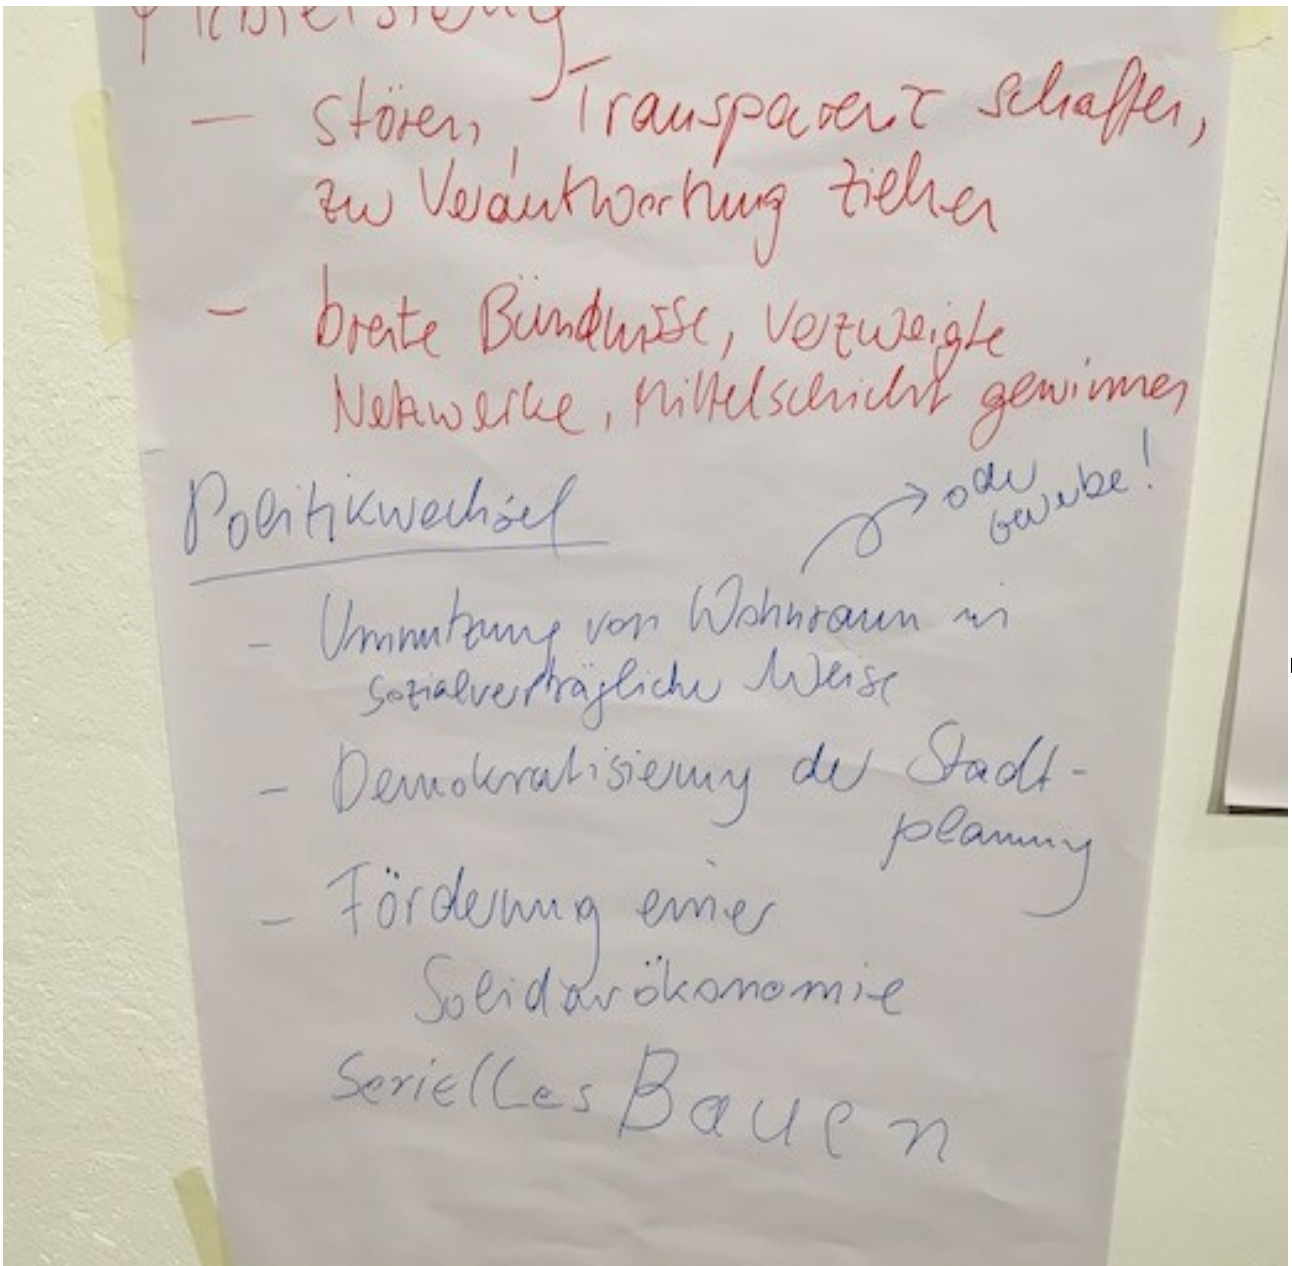 - stören, Transparenz schaffen,
zur Verantwortung ziehen
- breite Bündnisse, verzweigte
Netzwerke, Mittelschicht gewinnen
Politikwechsel
→ oder
Gewerbe!
- Umnutzung von Wohnraum in
sozialverträglicher Weise
- Demokratisierung der Stadt-
planung
- Förderung einer
Solidarökonomie
Serielles Bauen